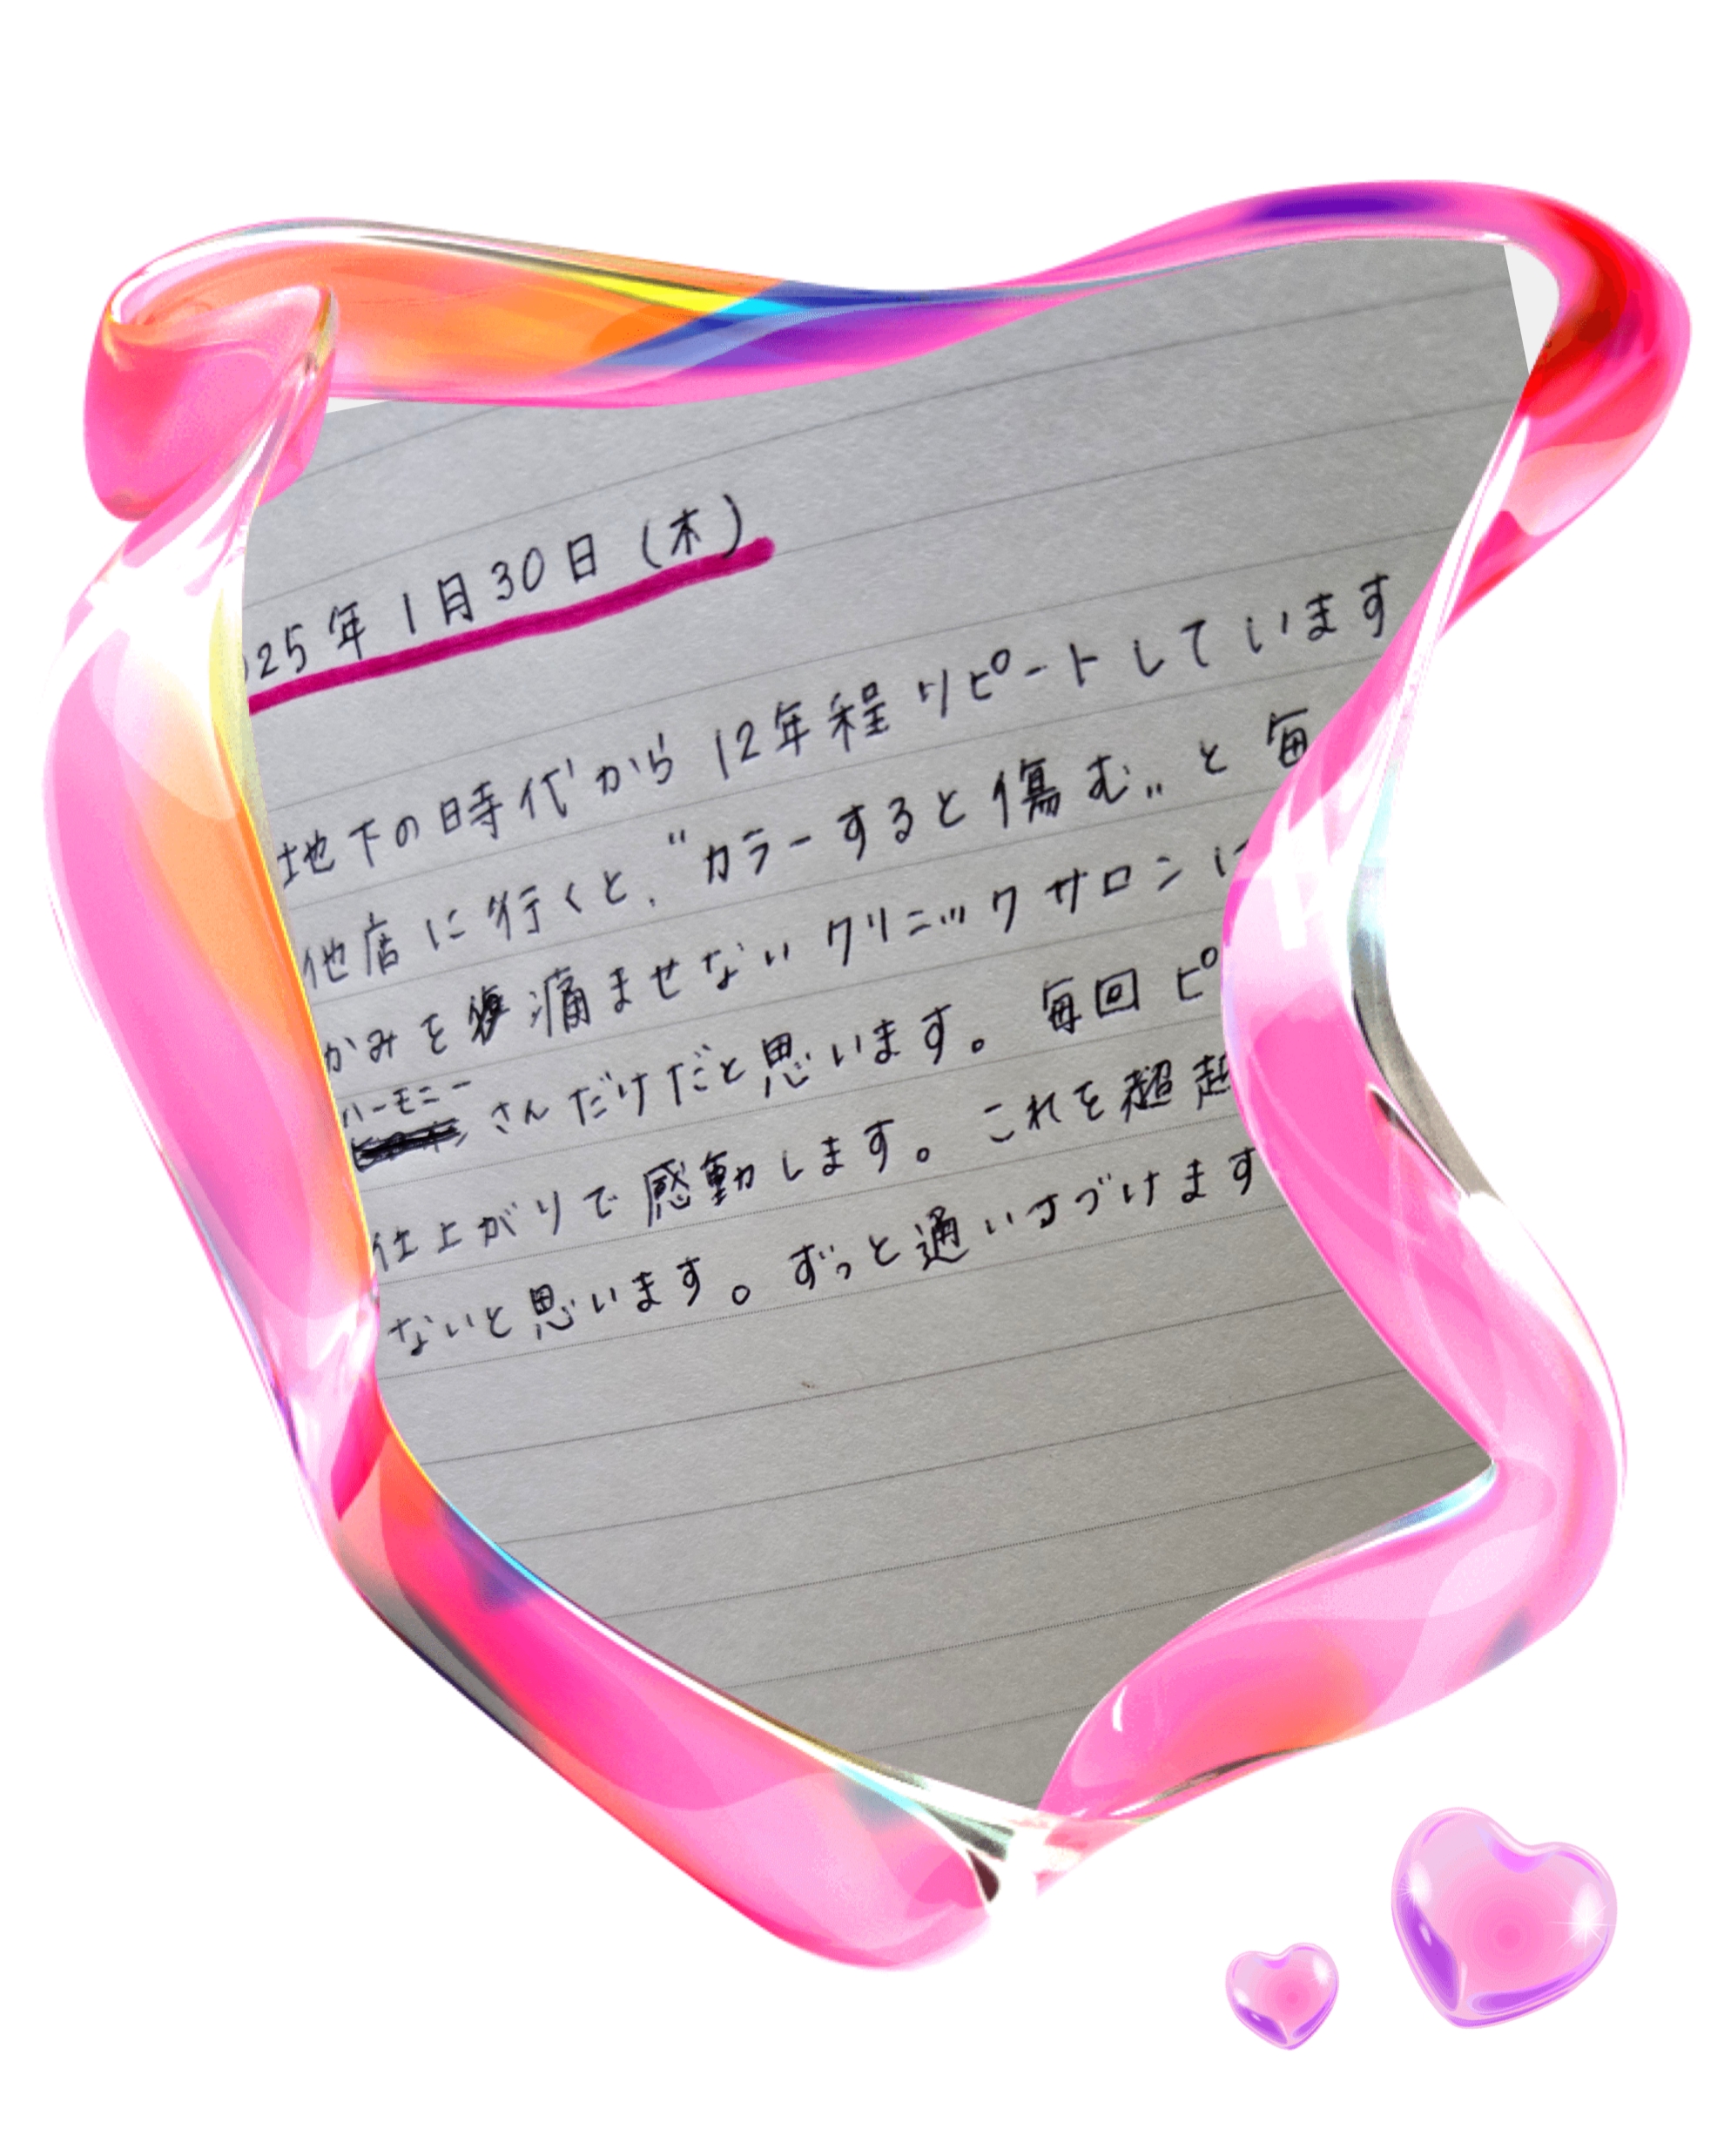 025年1月30日(木)
地下の時代から12年程リピートしています
他店に行くと、"カラーすると傷む„と毎
かみを痛ませないクリニックサロンに
ハーモニー
さんだけだと思います。毎回ピ
仕上がりで感動します。これを超越
ないと思います。ずっと通いつづけます